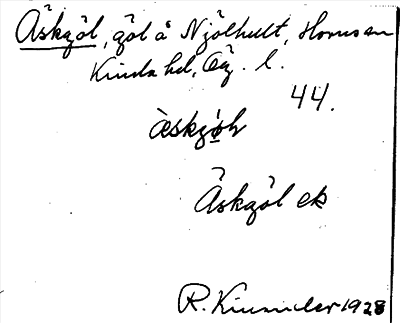 Äskgöl, göl å Njölhult, Horns sn
Kinda hd, Ög. l.
44.
äskjöh
Äskgöl ek
R. Kinander 1928